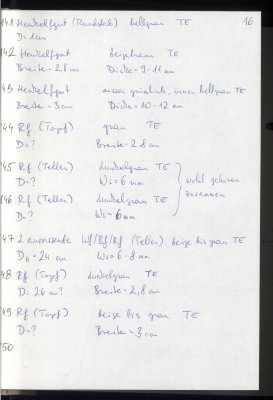 16
141 Henkelfgmt (Rundstab) hellgrau TE
D = 1cm
142 Henkelfgmt beigebraun TE
Breite = 2,8 cm Dicke = 9-11 mm
143 Henkelfgmt aussen grünlich, innen hellgrau TE
Breite = 3 cm Dicke = 10-12 mm
144 Rf (Topf) grau TE
D = ? Breite = 2,8 cm
145 Rf (Teller) dunkelgrau TE
D = ? Ws = 6 mm
wohl gehören zusammen
146 Rf (Teller) dunkelgrau TE
D = ? Ws = 6 mm
147 2 anpassende Wf/Bf/Rf (Teller) beige bis grau TE
Db = 24 cm Ws = 6-8 mm
148 Rf (Topf) dunkelgrau TE
D = 26 cm? Breite = 2,8 cm
149 Rf (Topf) beige bis grau TE
D = ? Breite = 3 cm
150